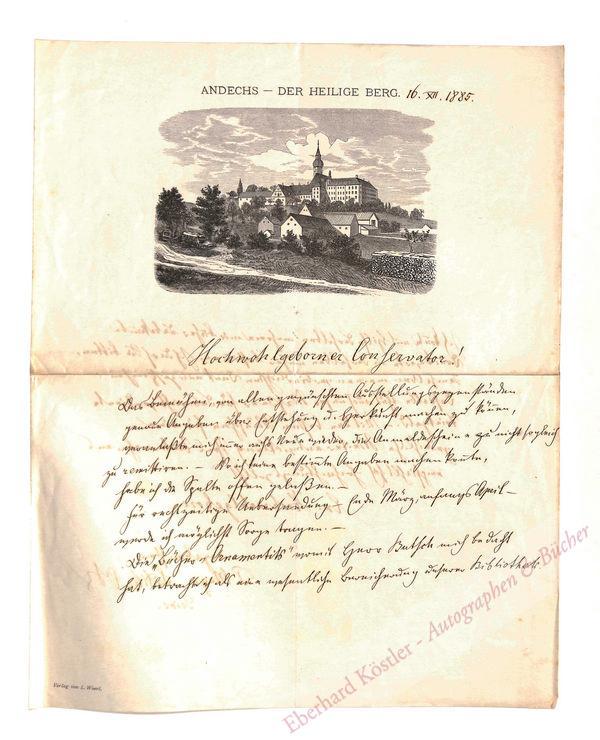 ANDECHS — DER HEILIGE BERG. 16. XII. 1885.
Hochwohlgeborner Conservator!
Das Bemühen, von allen gewünschten Ausstellungsgegenständen
genaue Angaben über Entstehung u. Herkunft machen zu können,
veranlaßte mich immer aufs Neue wieder, die Anmeldescheine zu nicht sogleich
zu remittiren. — Wo ich keine bestimmte Angaben machen konnte,
habe ich die Spalte offen gelaßen. —
Für rechtzeitige Uebersendung — Ende März, anfangs April —
werde ich möglichst Sorge tragen. —
Die „Bücher-Ornamentik" womit Herr mich bedacht
hat, betrachte ich als eine wesentliche Bereicherung unserer Bibliothek.
Verlag von L. Woerl.
Eberhard Köstler - Autographen & Bücher